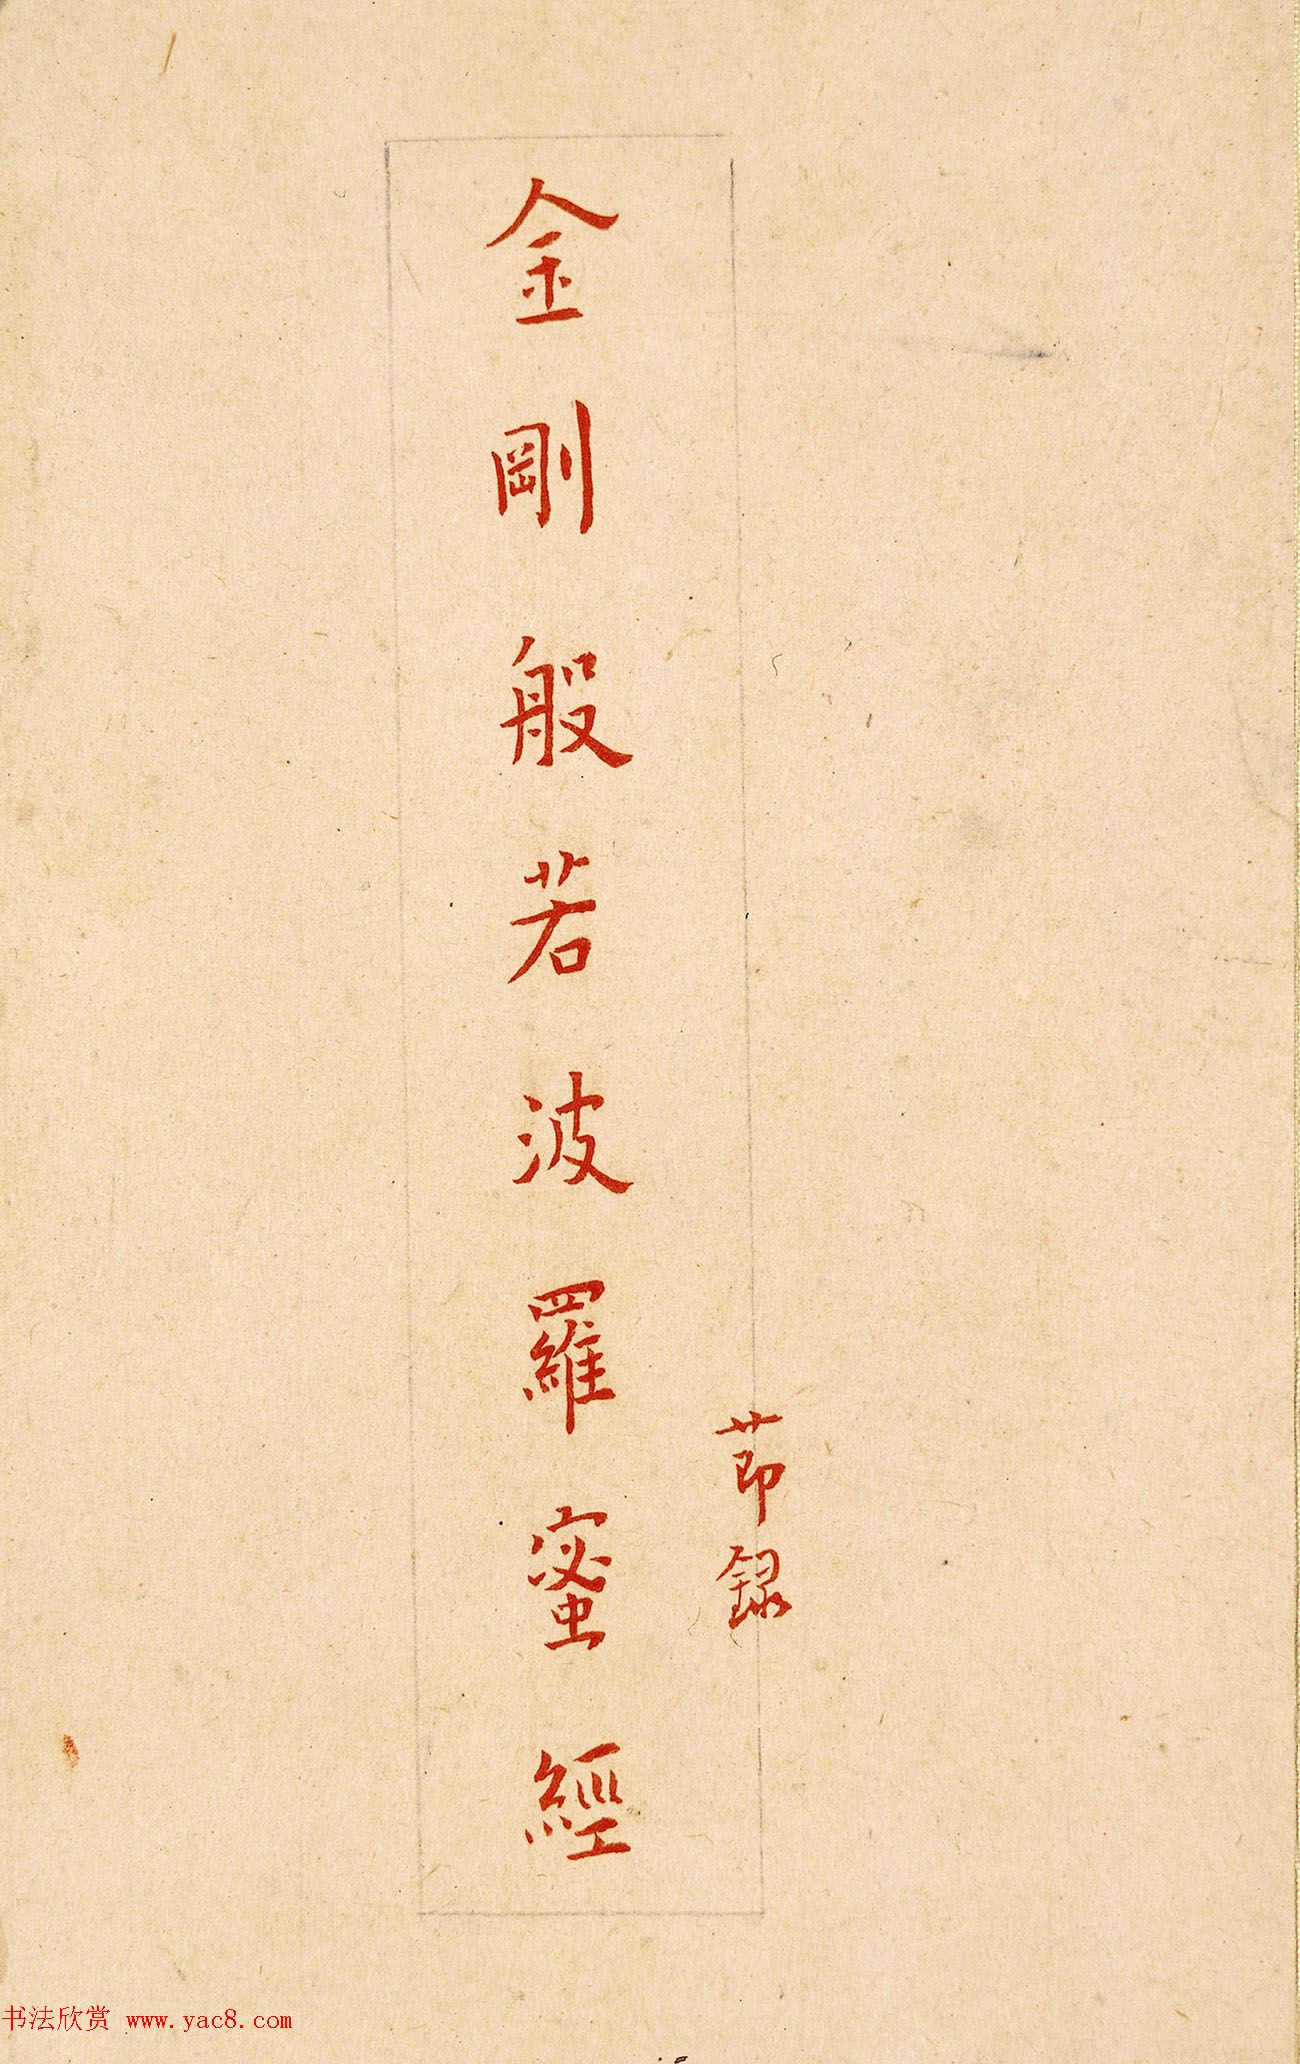 金剛般若波羅蜜經
節錄
书法欣赏 www.yac8.com